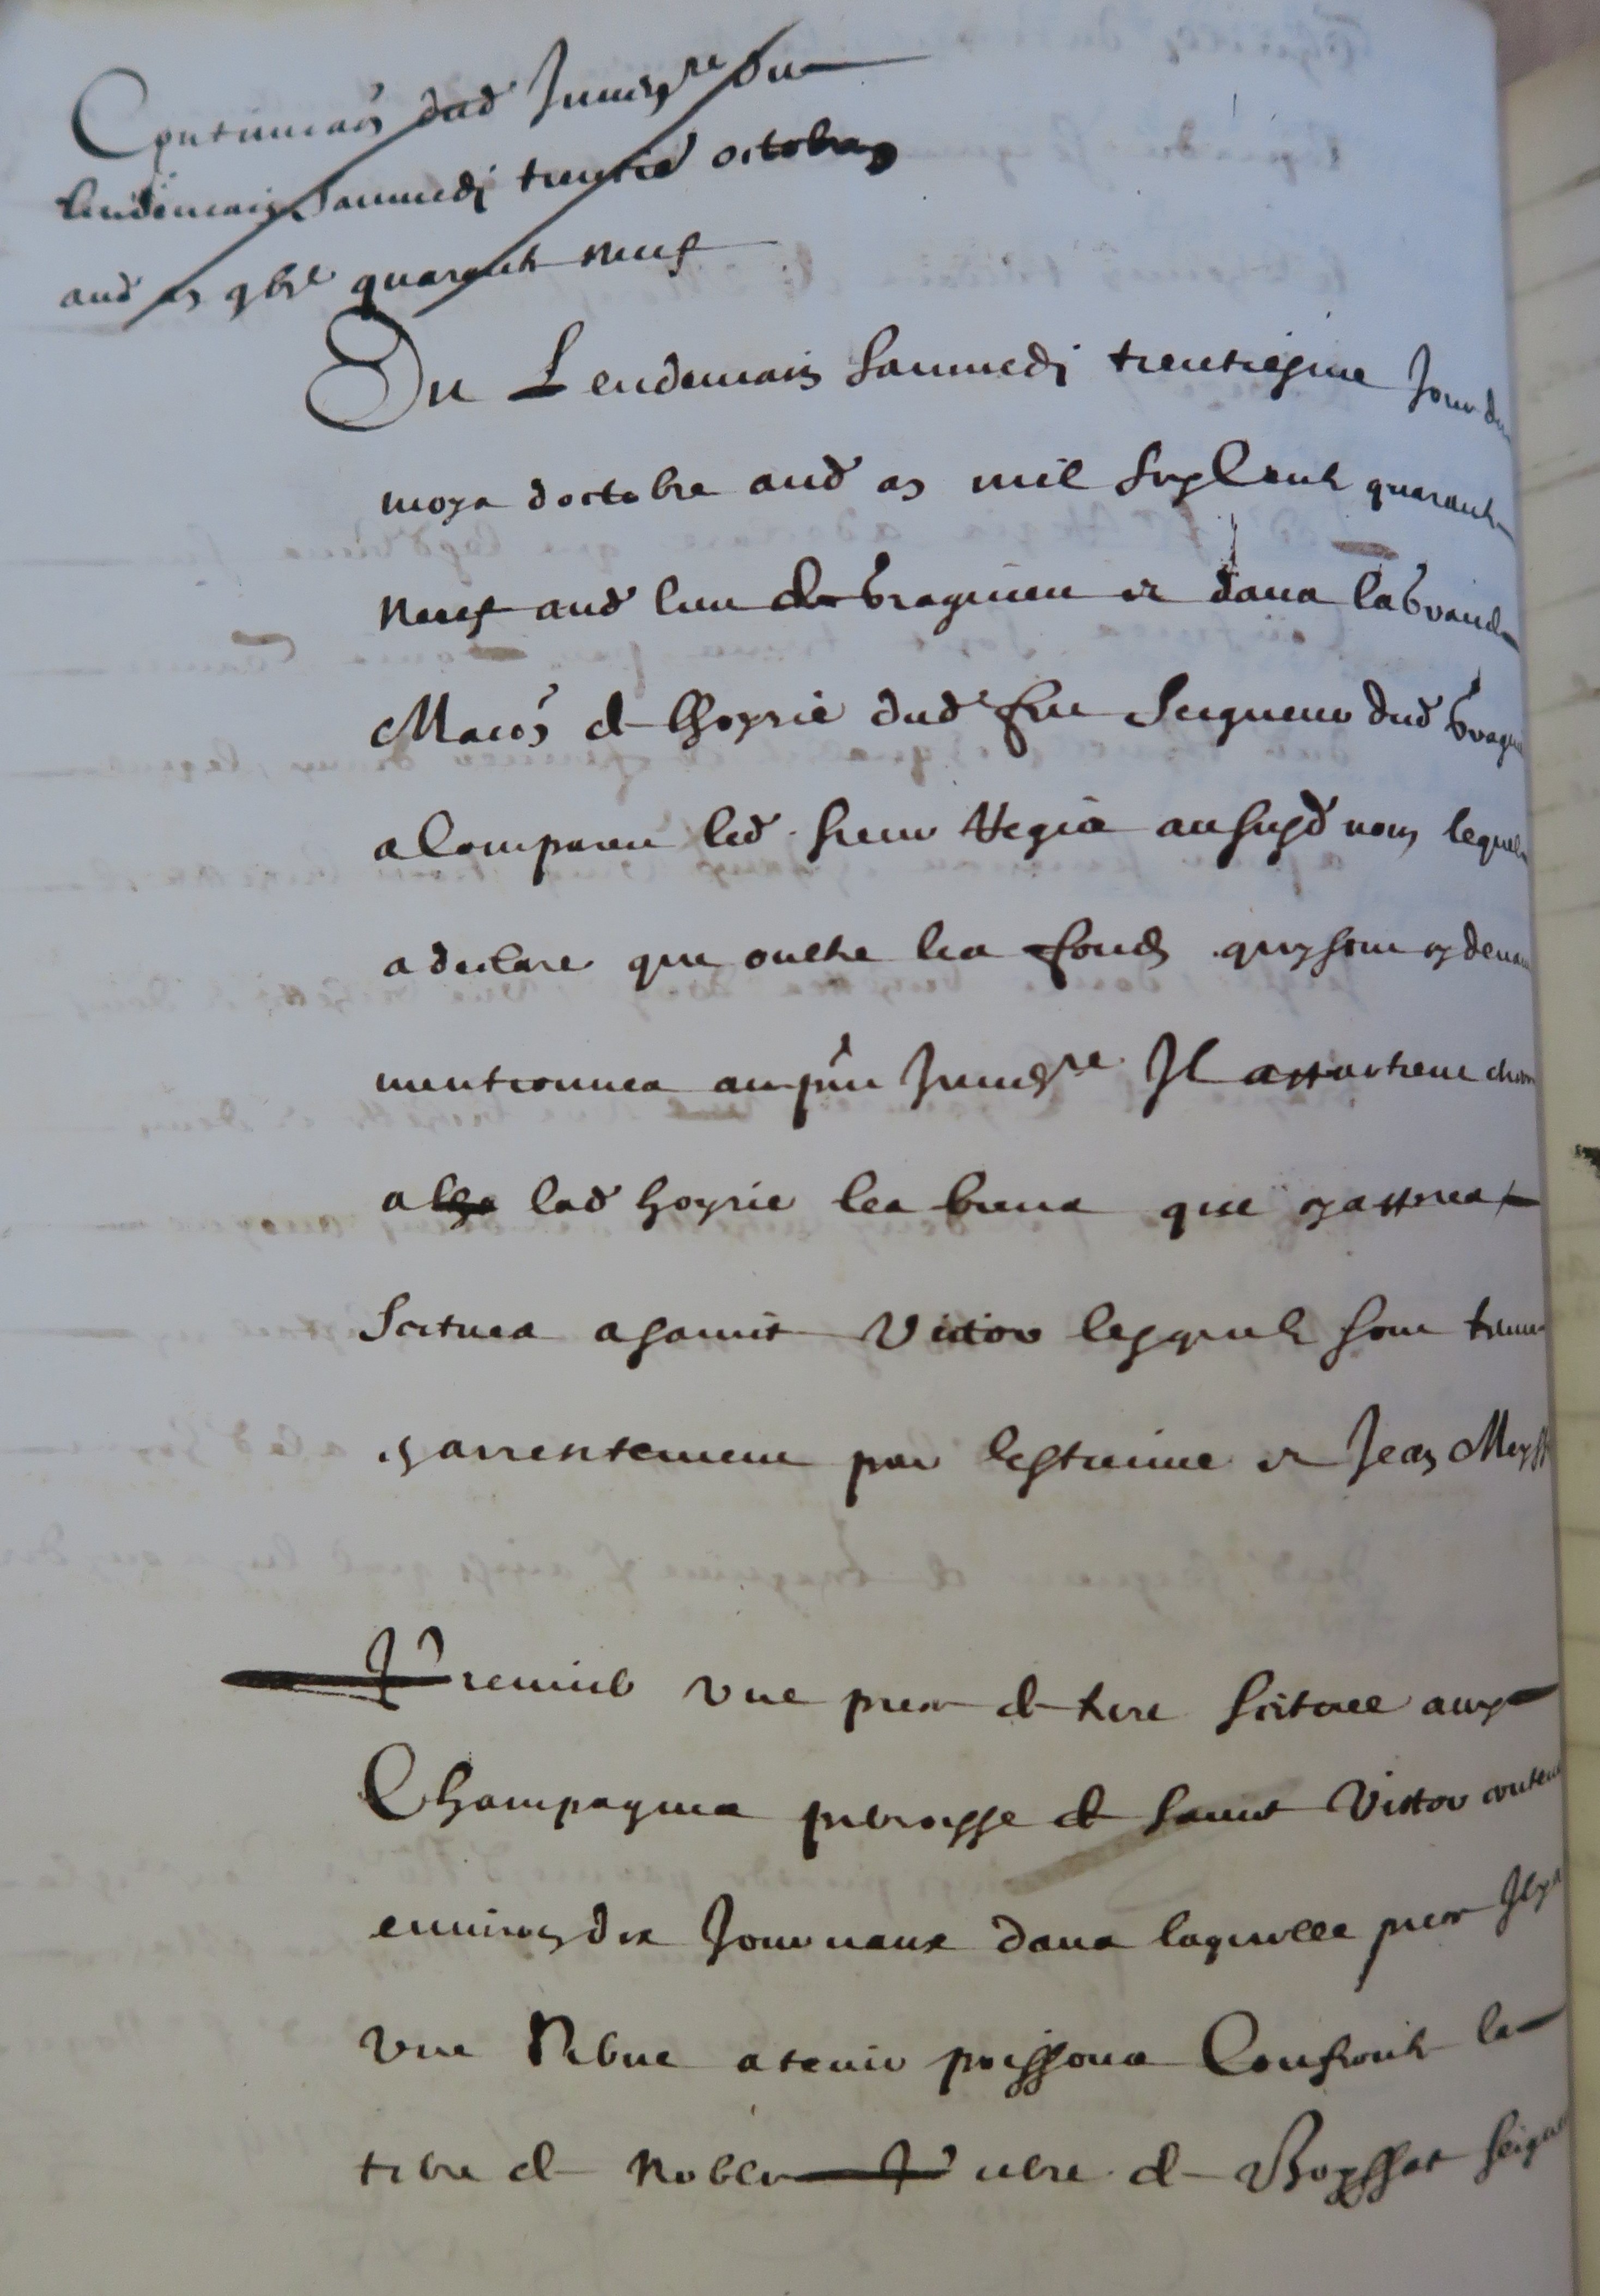 Continuaõn dud Inven^re du
lendemain Sammedi trentie octobre
aud an 9bre quarante neuf
Du Lendemain Sammedi trentiesme Jour du
moys doctobre aud an mil six Cent quarante
neuf aud lieu de Bragnieu et dans la Grand
Maiõn de lhoyrie dud feu Seigneur dud Bragni
a Comparu led sieur au susd nom lequel
a declare que oultre les fonds quy sont cy devant
mentionnes au pñt Inven^re Il appartient
a lad hoyrie les biens que cy apprez
Scitues a Sainct Victor lesquels sont tenus
en arrentement par Estienne et Jean
Premier une piece de terre scituee aux
Champagnes parroisse de Sainct Victor conten
environ dix Journaux dans laquelle piece Il y a
une a tenir poissons Confronte la
terre de Noble Pierre de Boyssat Seigneu